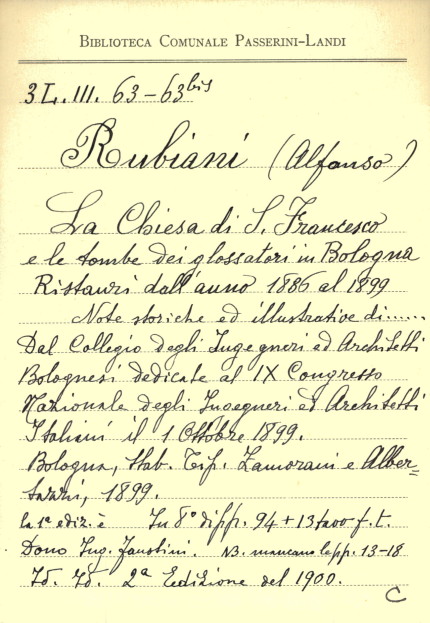 BIBLIOTECA COMUNALE PASSERINI-LANDI
3L.III. 63-63bis
Rubiani (Alfonso)
La Chiesa di S. Francesco
e le tombe dei glossatori in Bologna
Ristauri dall'anno 1886 al 1899
Note storiche ed illustrative di......
Dal Collegio degli Ingegneri ed Architetti
Bolognesi dedicate al IX Congresso
Nazionale degli Ingegneri ed Architetti
Italiani il 1 Ottobre 1899.
Bologna, Stab. Tip. Zamorani e Alber=
tazzi, 1899.
la 1a ediz. è In 8° di pp. 94+13 tavv f. t.
Dono Ing. Faustini. NB. mancano le pp. 13-18
Id. Id. 2a Edizione del 1900.
C